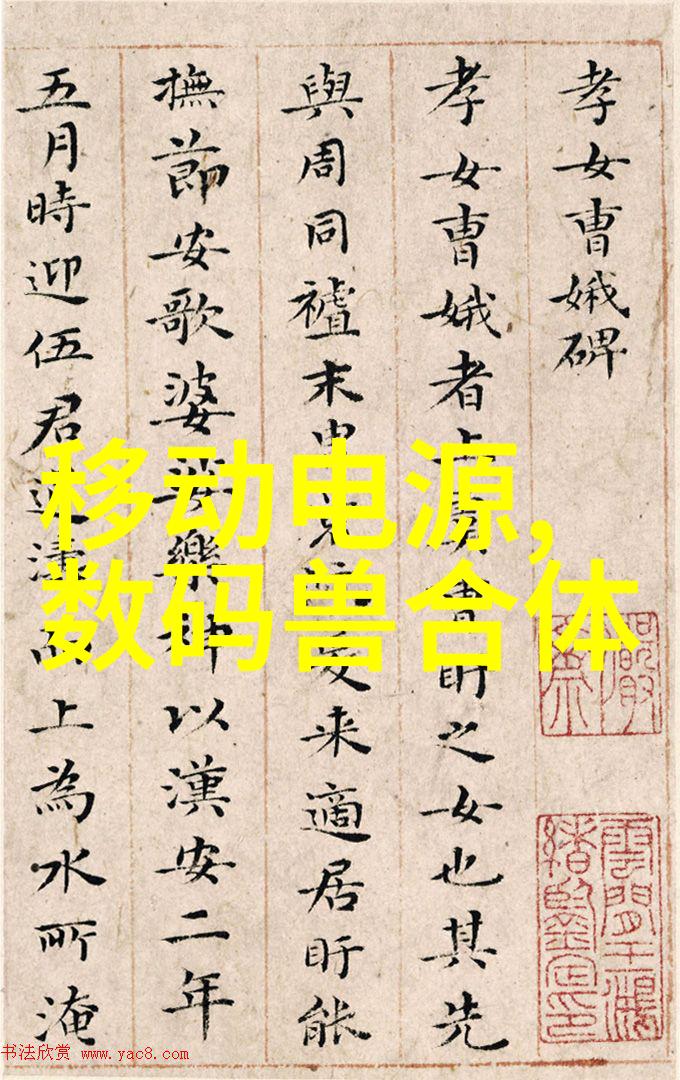 孝女曹娥碑
孝女曹娥者上虞曹盱之女也其先
與周同禇末胄荒沈爰来適居盱能
撫節安歌婆娑樂神以漢安二年
五月時迎伍君逆濤而上為水所淹
移动电源,
数码兽合体
书法欣赏 www.yac8.com